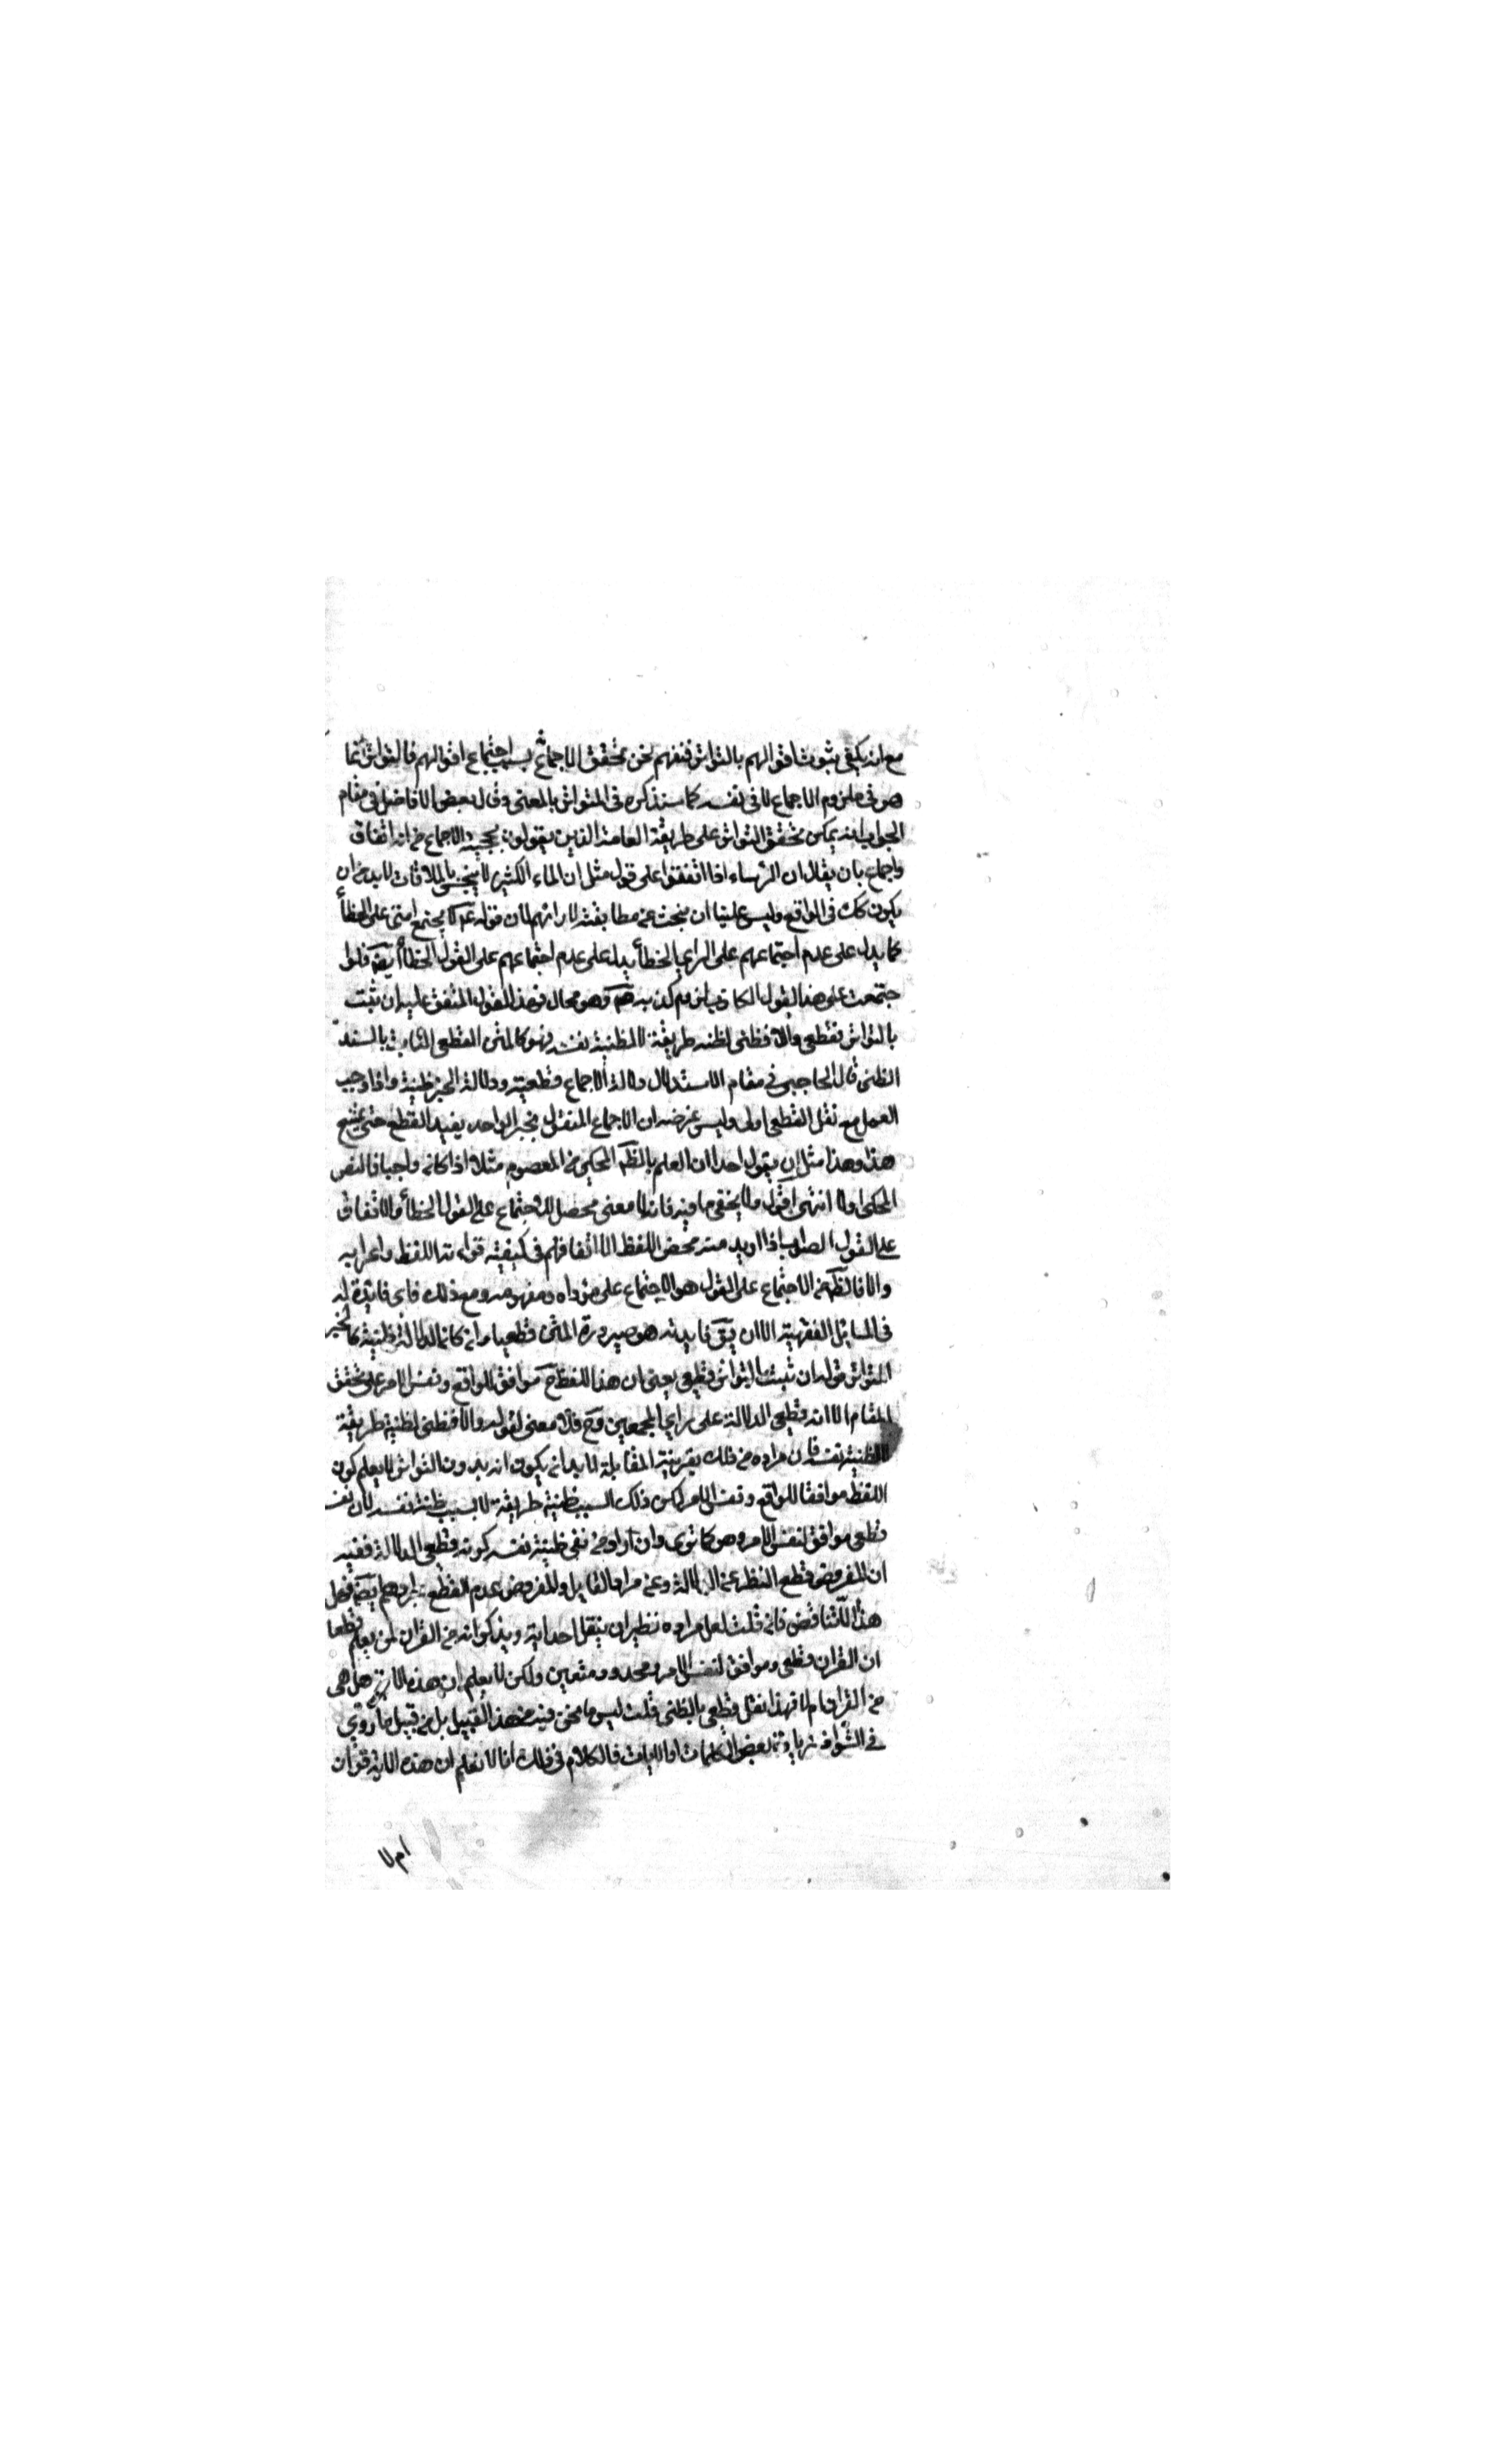 مع انه يكفي ثبوت اقوالهم بالتواتر فنفهم نحن تحقق الاجماع بسبب اجتماع اقوالهم فالتواتر انما
هو في ملزوم الاجماع لا في نفسه كما سنذكره في المتواتر بالمعنى وقال بعض الافاضل في مقام
الجواب انه يمكن تحقق التواتر على طريقة العامة الذين يقولون بحجية الاجماع من انه اتفاق
واجماع بان يقال ان الرؤساء اذا اتفقوا على قول مثل ان الماء الكثير لا ينجس بالملاقات لا بد من ان
يكون كك في الواقع وليس علينا ان نبحث عن مطابقته لارائهم لان قوله لا يجتمع امتي على الخطأ
كما يدل على عدم اجتماعهم على الراي الخطأ يدل على عدم اجتماعهم على القول الخطأ ايضا فلوا
جتمعت على هذا القول الكاذب لزم كذبه وهو محال فهذا القول المتفق عليه ان ثبت
بالتواتر فقطعي والا فظني لظنية طريقة لا لظنية نفسه فهو كالمتن القطعي الثابت بالسند
الظني قال الحاجبي في مقام الاستدلال دلالة الاجماع قطعية ودلالة الخبر ظنية واذا وجب
العمل مع نقل القطعي اولى وليس غرضه ان الاجماع المنقول بخبر الواحد يفيد القطع حتى يمنع
هذا وهذا مثل ان يقول احد ان العلم بالظن المحكي من المعصوم مثلا اذا كان واجبا فالنص
المحكي اولا انتهى اقول ولا يخفى ما فيه فانه لا معنى محصل للاجتماع على القول الخطأ والاتفاق
على القول الصواب اذا اريد منه محض اللفظ الا اتفاقهم في كيفية قراءة اللفظ واعرابه
والا فالظ من الاجتماع على القول هو الاجتماع على مؤداه ومفهومه ومع ذلك فاى فائدة له
في المسايل الفقهية الا ان يق فايدته هو صيرورة المتن قطعيا وان كان الدلالة ظنية كالخبر
المتواتر قوله ان ثبت بالتواتر فقطعي يعني ان هذا اللفظ ح موافق للواقع ونفس الامر على تحقق
المقام الا انه قطعي الدلالة على راي المجمعين وح فلا معنى لقوله والا فظني لظنية طريقة
لا لظنية نفسه فان مراده من ذلك بقرينة المقابلة لا بد ان يكون انه بدون التواتر لا يعلم كون
اللفظ موافقا للواقع ونفس الامر لكن ذلك لسبب ظنية طريقة لا بسبب ظنية نفسه لان نفسه
قطعي موافق لنفس الامر وهو كما ترى وان اراد من نفي ظنية نفسه كونه قطعي الدلالة ففيه
ان المفروض قطع النظر عن الدلالة وعن مراد القايل والمفروض عدم القطع بمرادهم ايضا فهل
هذا الا تناقض فان قلت لعل مراده نظير ان ينقل احد اية ويذكر انه من القران لمن يعلم قطعا
ان القران قطعي وموافق لنفس الامر محدود ومتعين ولكن لا يعلم ان هذه الاية هل هي
من القران ام لا فهذا نقل قطعي بالظني قلت ليس ما نحن فيه من هذا القبيل بل من قبيل ما روي
في الشواذ من زيادة بعض الكلمات او الايات فالكلام في ذلك انا لا نعلم ان هذه الاية قران
ام لا